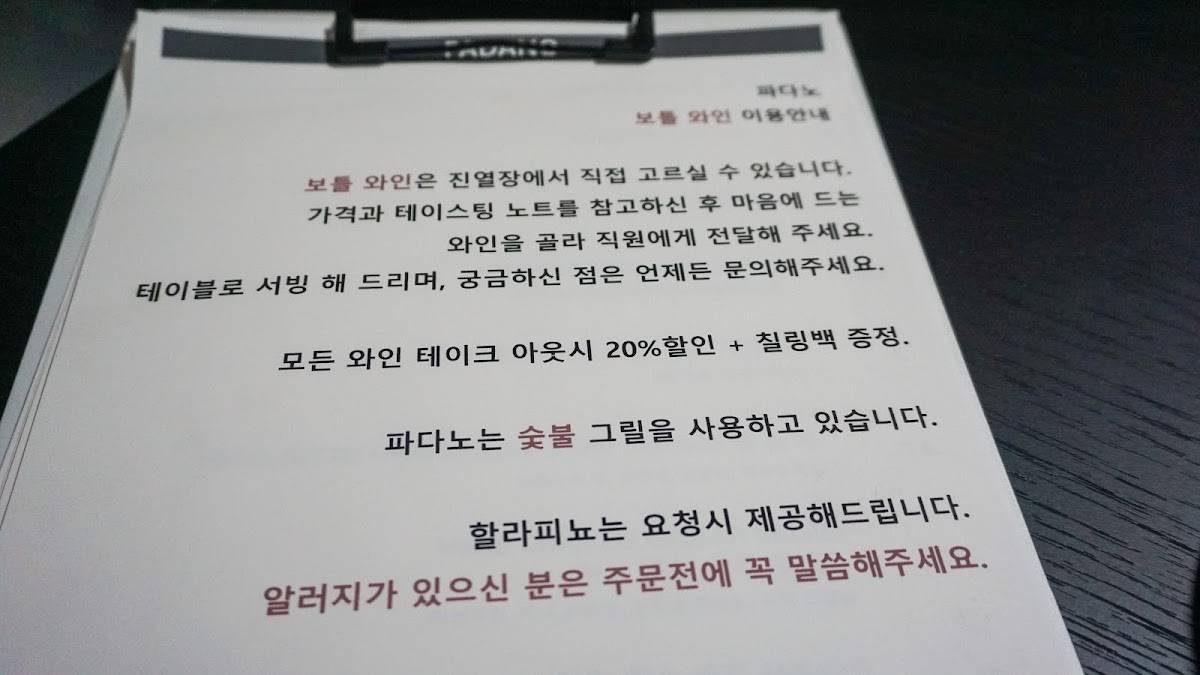 PADANO
파다노
보틀 와인 이용안내
보틀 와인은 진열장에서 직접 고르실 수 있습니다.
가격과 테이스팅 노트를 참고하신 후 마음에 드는
와인을 골라 직원에게 전달해 주세요.
테이블로 서빙 해 드리며, 궁금하신 점은 언제든 문의해주세요.
모든 와인 테이크 아웃시 20%할인 + 칠링백 증정.
파다노는 숯불 그릴을 사용하고 있습니다.
할라피뇨는 요청시 제공해드립니다.
알러지가 있으신 분은 주문전에 꼭 말씀해주세요.